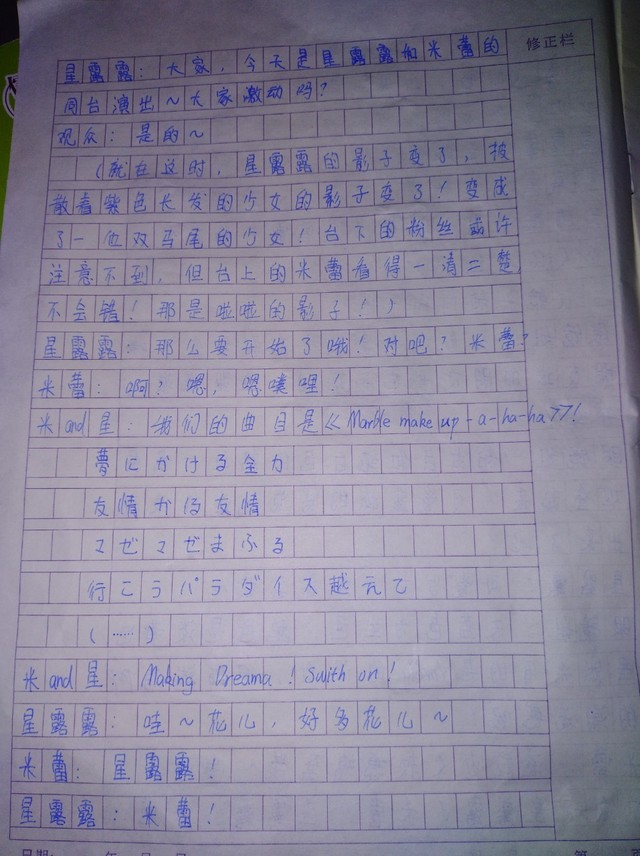 修正栏
星露露：大家，今天是星露露和米蕾的
同台演出～大家激动吗？
观众：是的～
（就在这时，星露露的影子变了，披
散着紫色长发的少女的影子变了！变成
了一位双马尾的少女！台下的粉丝或许
注意不到，但台上的米蕾看得一清二楚，
不会错！那是啦啦的影子！）
星露露：那么要开始了哦！对吧？米蕾？
米蕾：啊？嗯，嗯噗哩！
米and星：我们的曲目是《Marble make up-a-ha-ha》！
夢にかける全力
友情かける友情
マゼマゼまふる
行こうパラダイス越えて
（……）
米and星：Making Drema！Swith on！
星露露：哇～花儿，好多花儿～
米蕾：星露露！
星露露：米蕾！
日期： 年
第